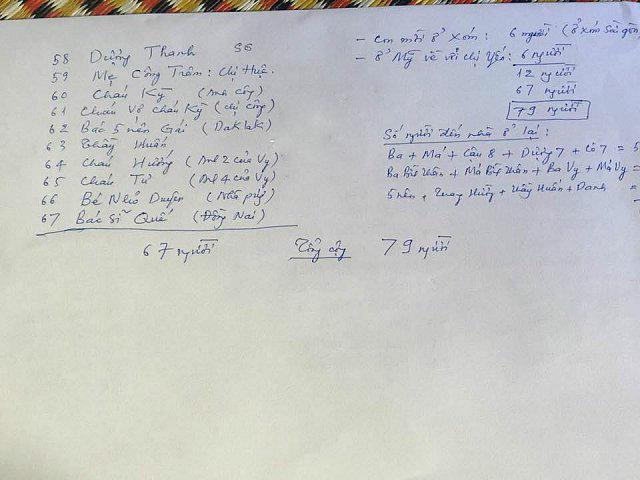 58 Dượng Thanh SG
59 Mẹ Công Trâm: Chị Huệ.
60 Cháu Kỳ (Anh Công)
61 Cháu Vẽ cháu Kỳ (chị Công)
62 Bác 5 nên Gái (DakLak)
63 Thầy Huấn
64 Cháu Hương (Anh 2 của Vy)
65 Cháu Tư (Anh 4 của Vy)
66 Bé Nhỏ Duyên (Nhà phụ)
67 Bác Sĩ Quế (Đồng Nai)
67 người Tổng cộng 79 người
- Con mời ở Xóm: 6 người (ở xóm Sài gòn
- ở Mỹ về với chị Yến: 6 người
12 người
67 người
79 người
Số người đến nhà ở lại:
Ba + Má + Cậu 8 + Dượng 7 + Cô 7 = 5
Ba + Má + Ba Vy + Má Vy =
5 nên + Hương + Thầy Huấn + Danh =